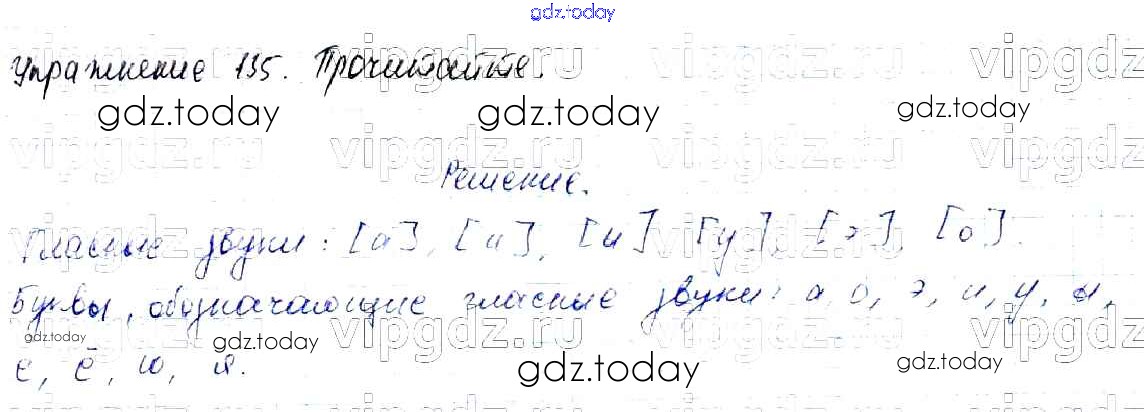 gdz.today
Упражнение 135. Прочитайте.
gdz.today gdz.today gdz.today
vipgdz.ru vipgdz.ru vipgdz.ru vipgdz
Решение.
Гласные звуки: [а], [и], [и] [у], [э], [о].
Буквы, обозначающие гласные звуки: а, о, э, и, у, ы,
gdz.today gdz.today gdz.today gdz.today
е, ё, ю, я.